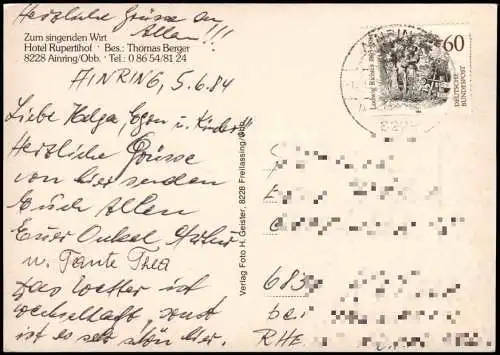 Herzliche Grüsse an
Allen!!!
Zum singenden Wirt
Hotel Rupertihof · Bes.: Thomas Berger
8228 Ainring/Obb. · Tel.: 0 86 54/81 24
AINRING, 5.6.84
Liebe Helga, Egon u. Kinder!!
Herzliche Grüsse
von hier senden
Euch Allen
Euer Onkel
u. Tante Thea
Das Wetter ist
wechselhaft, sonst
ist es sehr schön hier.
Verlag Foto H. Geister, 8228 Freilassing/Obb.
AINRING
60
DEUTSCHE
BUNDESPOST
Ludwig Richter
683
bei
RHE